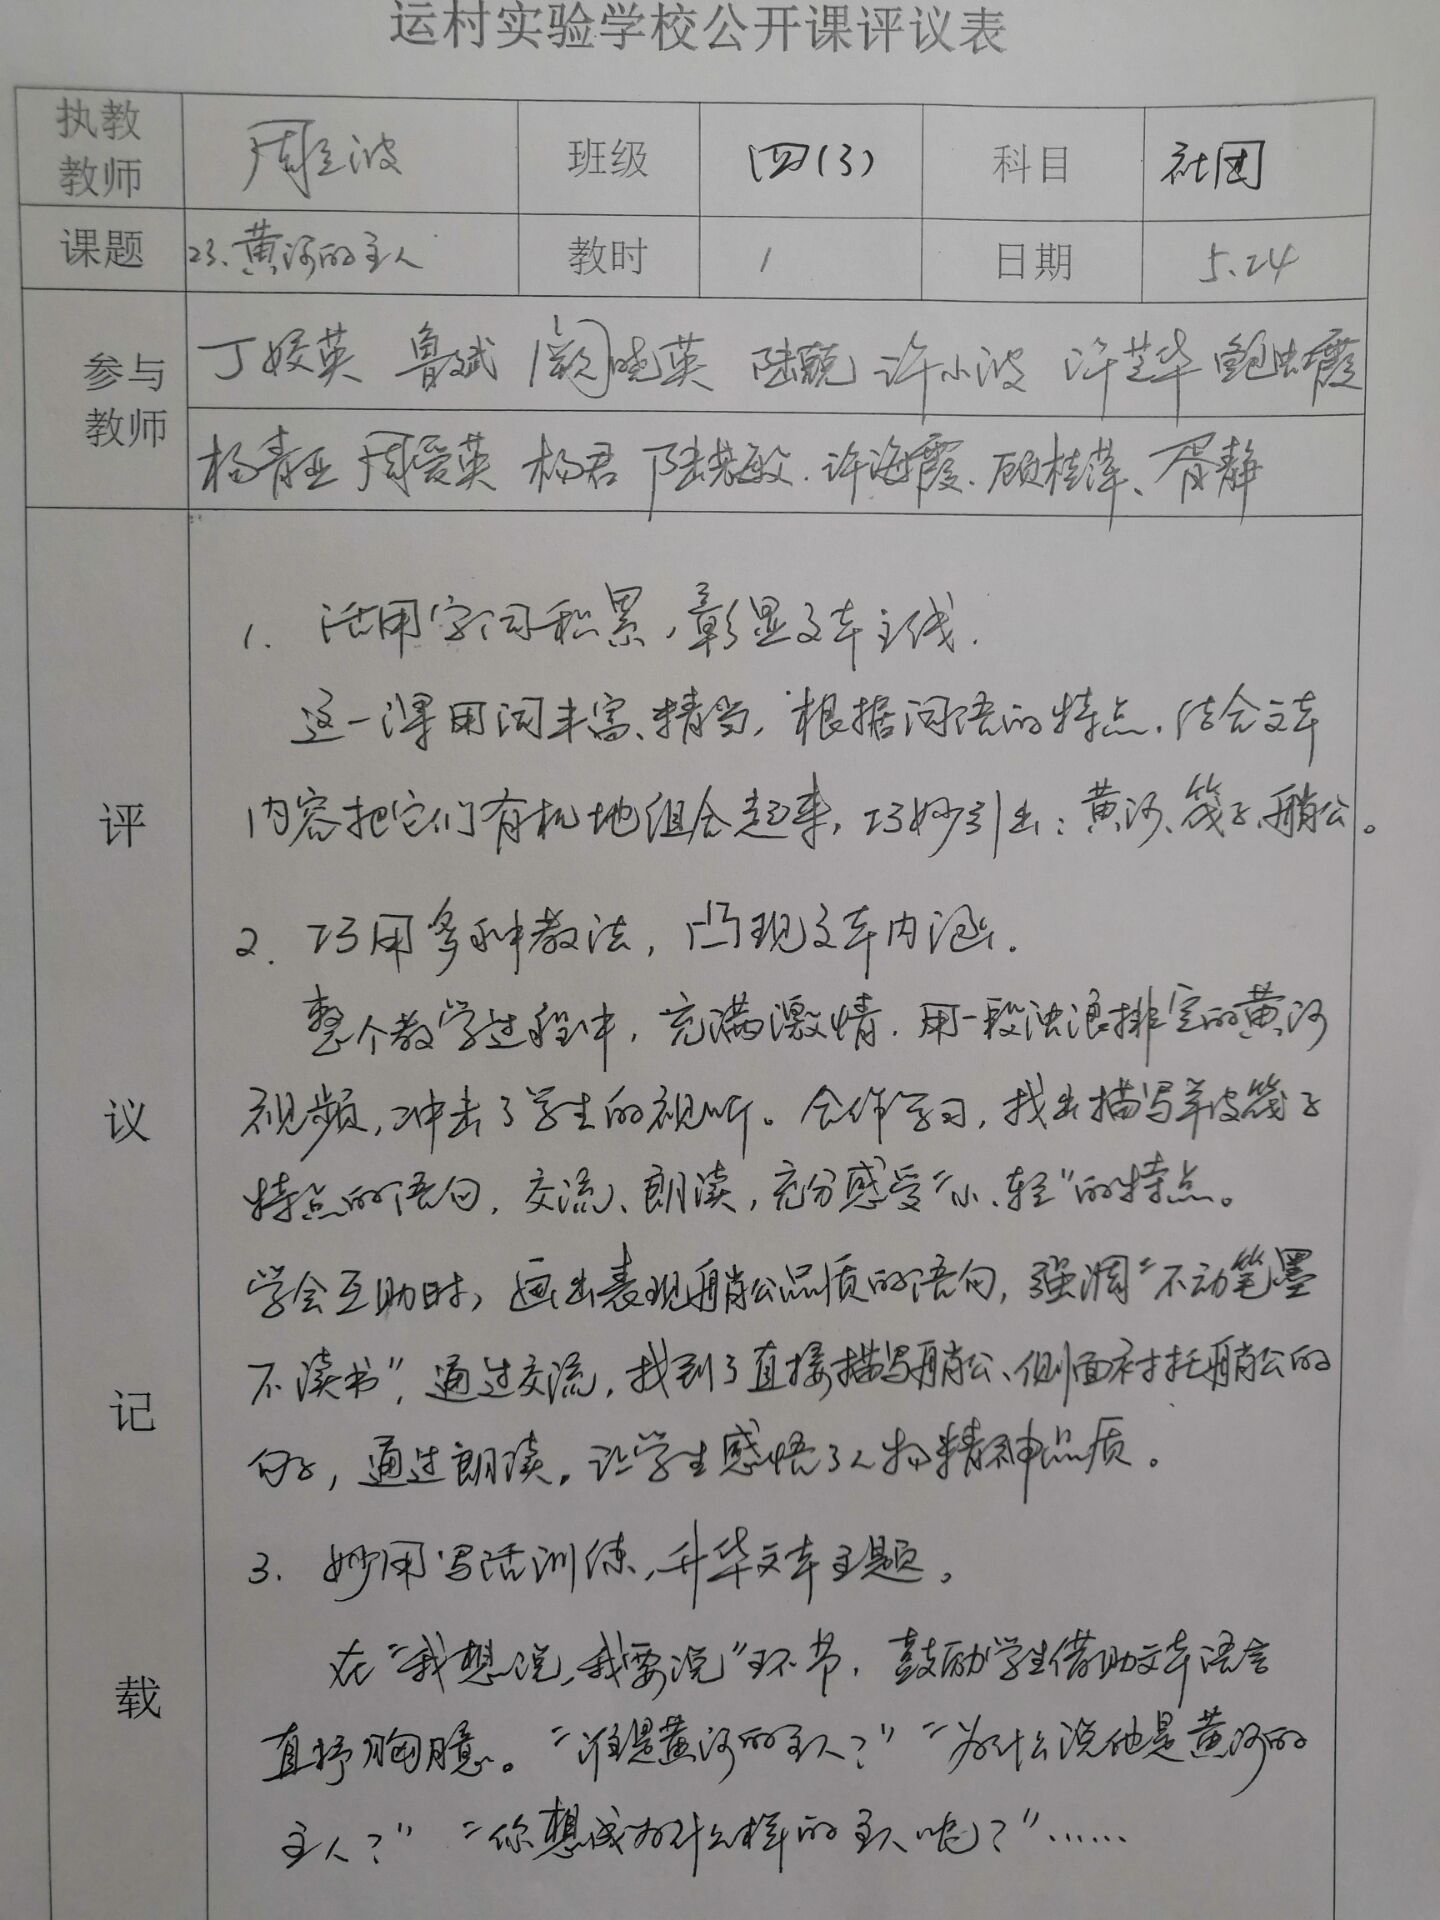 运村实验学校公开课评议表
执教教师 周立波 班级 四(3) 科目 社团
课题 23.黄河的主人 教时 1 日期 5.24
参与教师
丁媛英 鲁斌 阙晓英 陆靓 许小波 许芝华 鲍虫霞
杨青亚 周爱英 杨君 陆小敏. 许海霞. 顾桂萍、胥静
评议记载
1. 活用字词积累,彰显文本主线.
这一课用词丰富、精当,根据词语的特点.结合文本
内容把它们有机地组合起来,巧妙引出:黄河、筏子、艄公。
2. 巧用多种教法,凸现文本内涵.
整个教学过程中,充满激情.用一段浊浪排空的黄河
视频,冲击了学生的视听。合作学习,找出描写羊皮筏子
特点的语句,交流、朗读,充分感受“小、轻”的特点。
学会互助时,画出表现艄公品质的语句,强调“不动笔墨
不读书”,通过交流,找到了直接描写艄公、侧面衬托艄公的
句子,通过朗读,让学生感悟了人物精神品质。
3. 妙用写话训练,升华文本主题。
在“我想说,我要说”环节,鼓励学生借助文本语言
直抒胸臆。“谁是黄河的主人?”“为什么说他是黄河的
主人?”“你想成为什么样的主人呢?”……